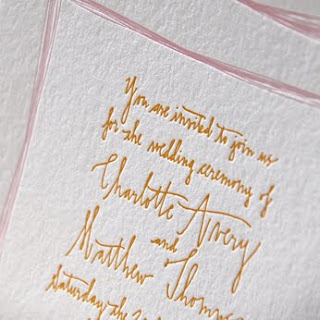 You are invited to join us
for the wedding ceremony of
Charlotte Avery
and
Matthew
Saturday the